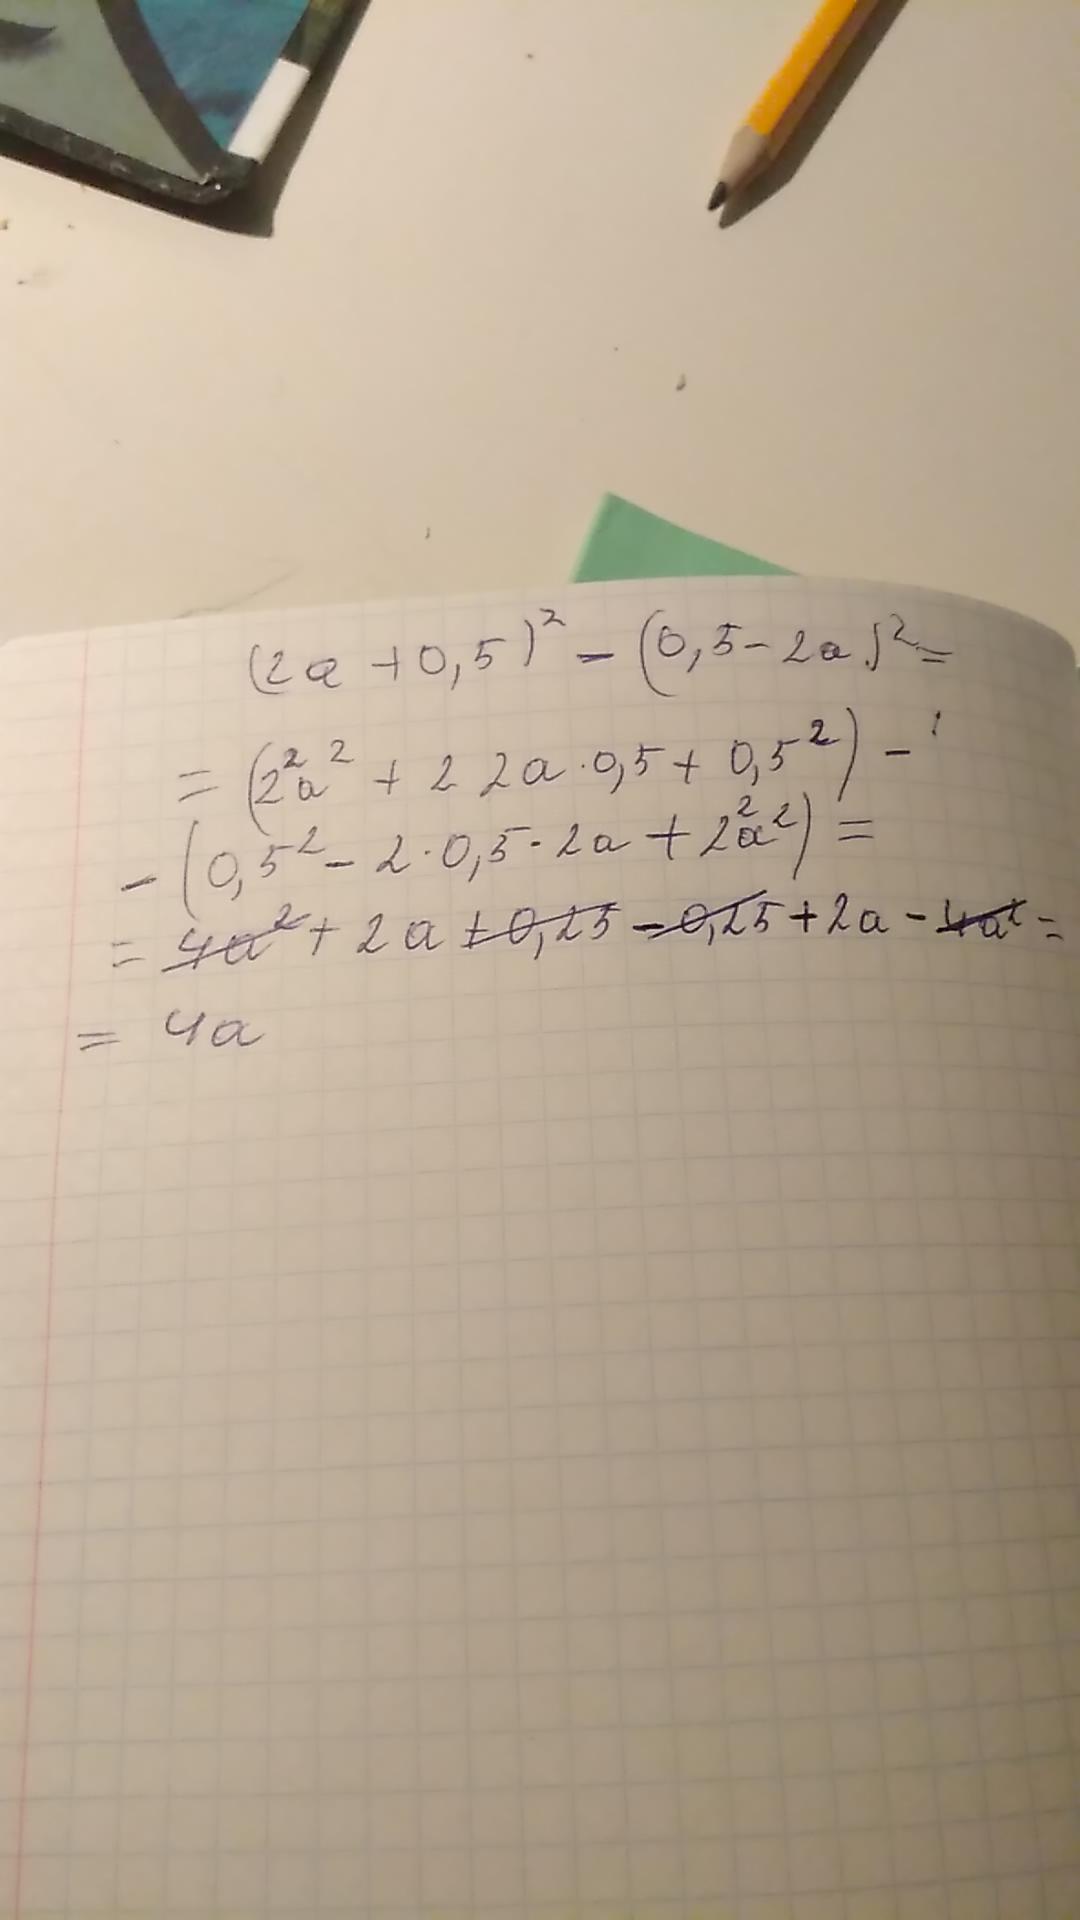 (2a + 0,5)² - (0,5 - 2a)² =
= (2²a² + 2 2a · 0,5 + 0,5²) -
- (0,5² - 2 · 0,5 · 2a + 2²a²) =
= 4a² + 2a + 0,25 - 0,25 + 2a - 4a² =
= 4a